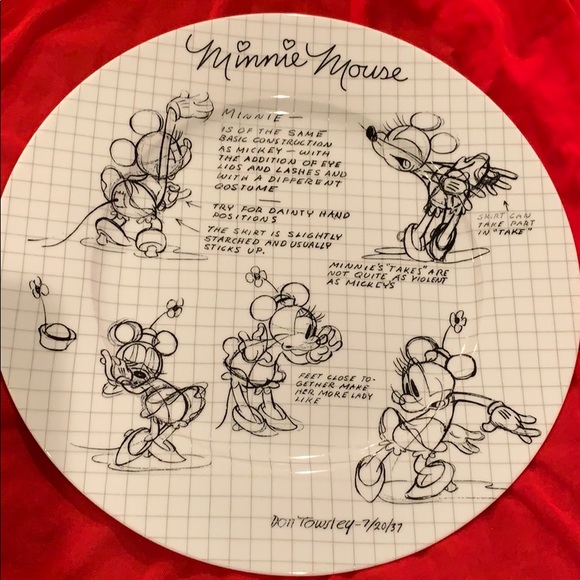 Minnie Mouse
MINNIE —
IS OF THE SAME
BASIC CONSTRUCTION
AS MICKEY — WITH
THE ADDITION OF EYE
LIDS AND LASHES AND
WITH A DIFFERENT
COSTUME
TRY FOR DAINTY HAND
POSITIONS
THE SKIRT IS SLIGHTLY
STARCHED AND USUALLY
STICKS UP.
SKIRT CAN
TAKE PART
IN "TAKE"
MINNIE'S "TAKES" ARE
NOT QUITE AS VIOLENT
AS MICKEY'S
FEET CLOSE TO-
GETHER MAKE
HER MORE LADY
LIKE
Don Towsley - 7/20/37